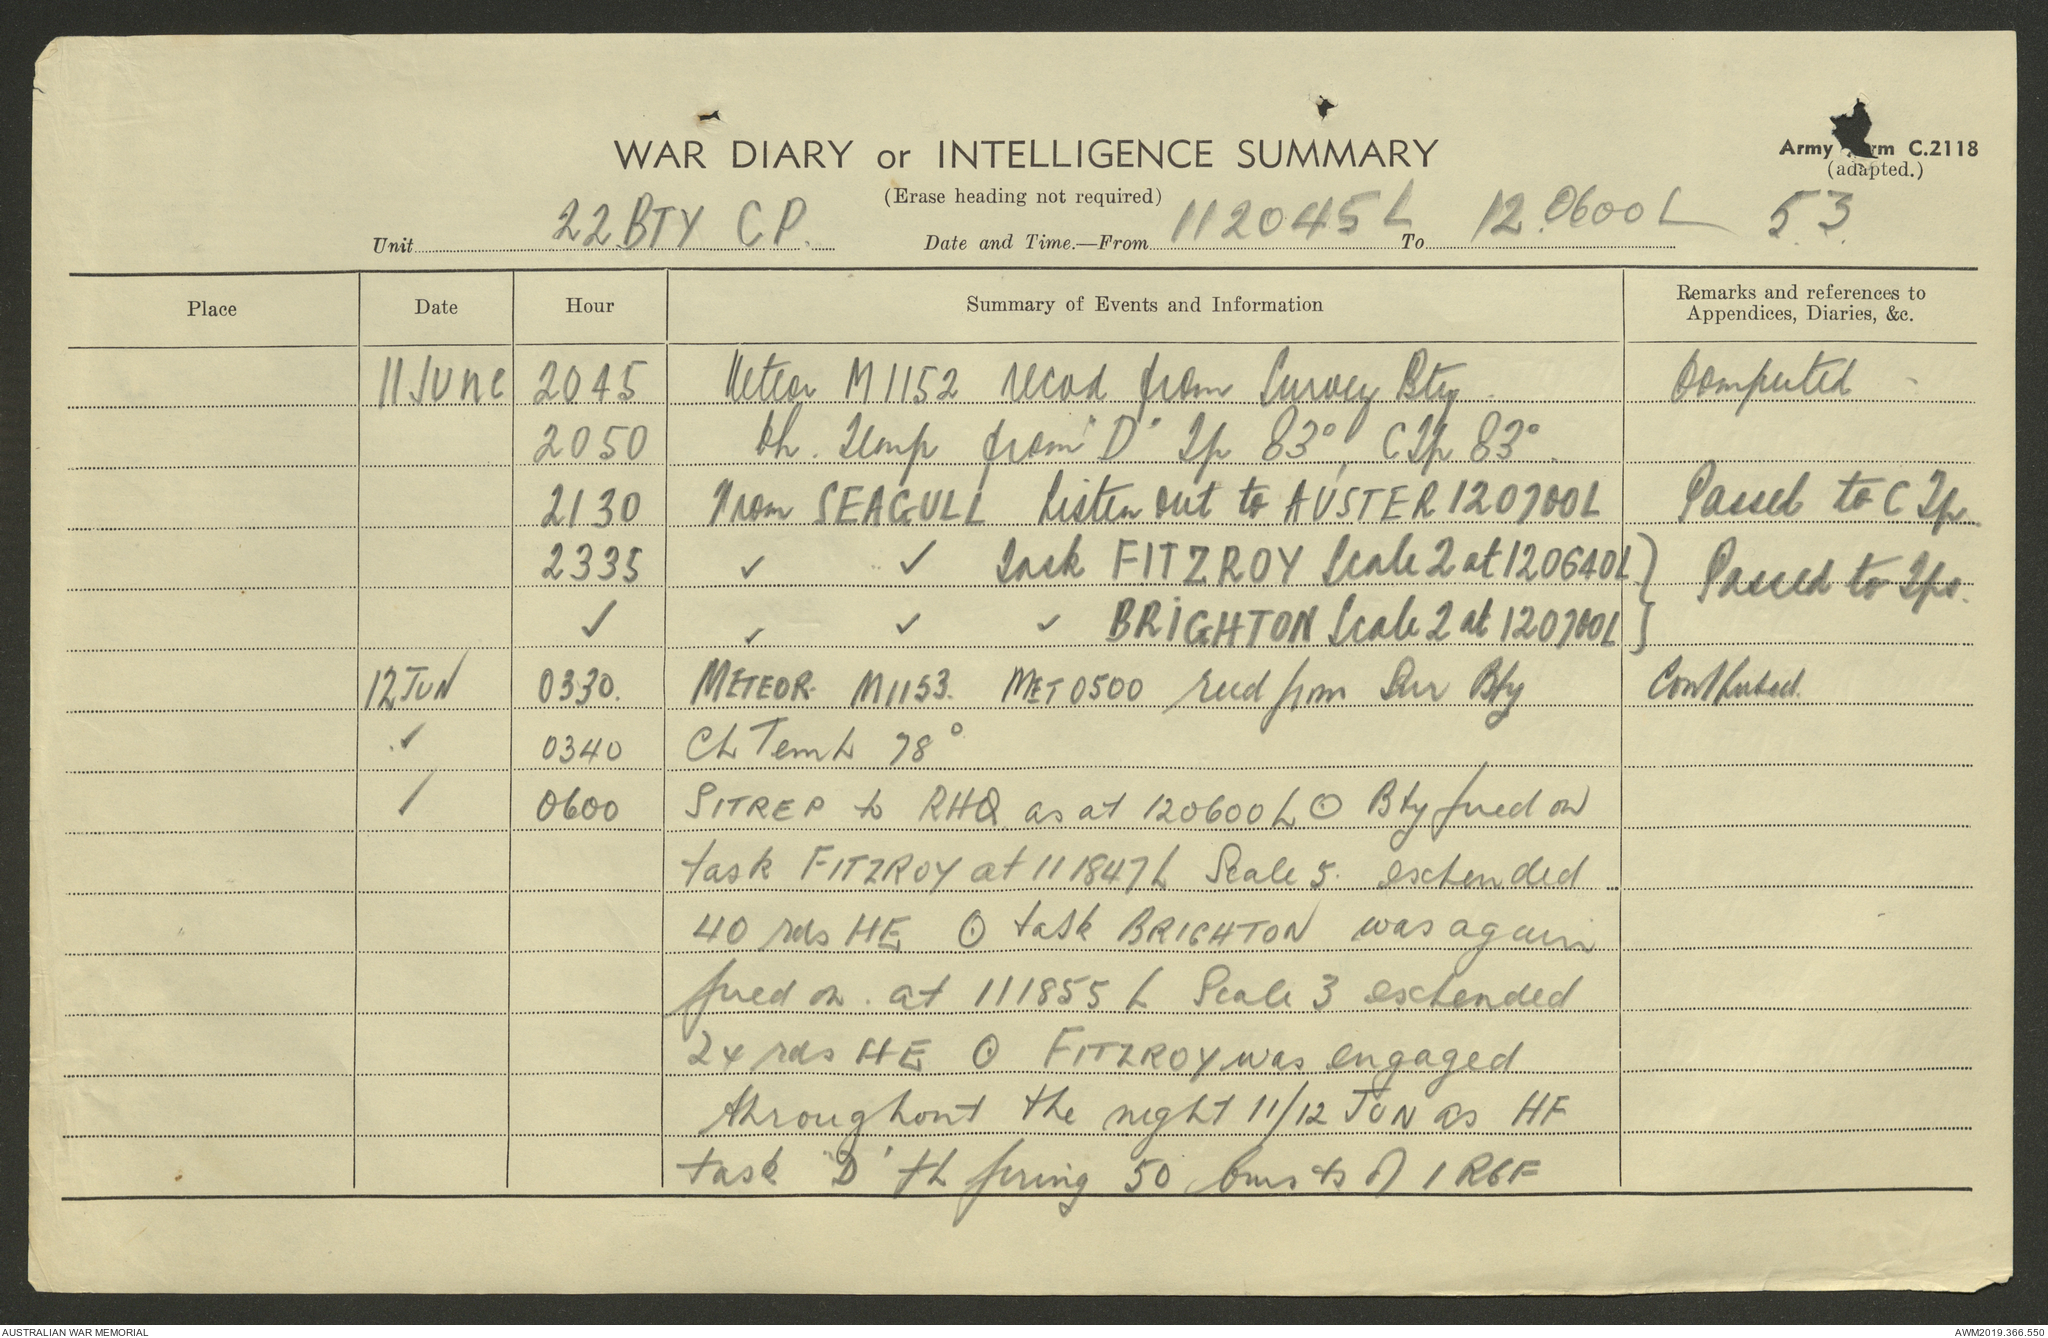 WAR DIARY or INTELLIGENCE SUMMARY
(Erase heading not required)
Army Form C.2118
(adapted.)
Unit 22 BTY C P. Date and Time.—From 112045L To 12.0600L 53
Place Date Hour Summary of Events and Information Remarks and references to Appendices, Diaries, &c.
11 JUNE 2045 Meteor M1152 recvd from Survey Bty. Computed
2050 Ch. Temp from "D" Tp 83°, C Tp 83°.
2130 From SEAGULL Listen out to AUSTER 120700L Passed to C Tp.
2335 ✓ ✓ Task FITZROY Scale 2 at 120640L } Passed to Tps.
✓ ✓ ✓ ✓ BRIGHTON Scale 2 at 120700L }
12 JUN 0330. METEOR M1153. MET 0500 recd from Sur Bty Computed.
✓ 0340 Ch Temp 78°
/ 0600 SITREP to RHQ as at 120600L ⊙ Bty fired on
task FITZROY at 111847L Scale 5. expended
40 rds HE ⊙ task BRIGHTON was again
fired on. at 111855L Scale 3 expended
24 rds HE ⊙ FITZROY was engaged
throughout the night 11/12 JUN as HF
task "D" tp firing 50 bursts of 1 RGF
AUSTRALIAN WAR MEMORIAL
AWM2019.366.550